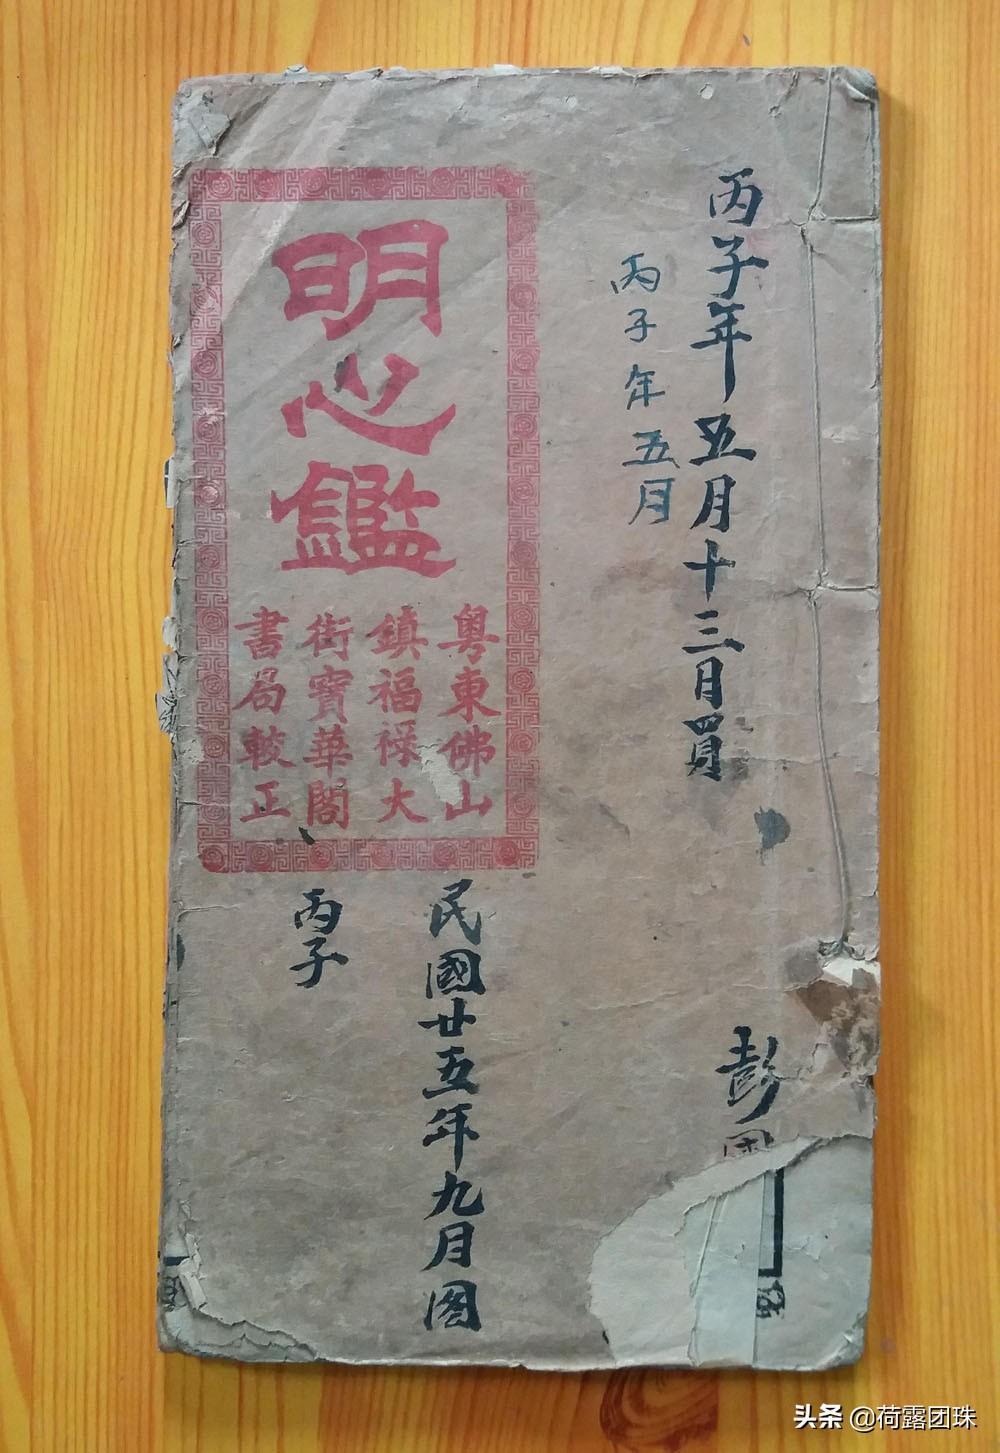 丙子年五月十三日買
丙子年五月
彭
明心鑑
粤東佛山
鎮福祿大
街寶華閣
書局較正
民國廿五年九月
丙子
头条 @荷露团珠